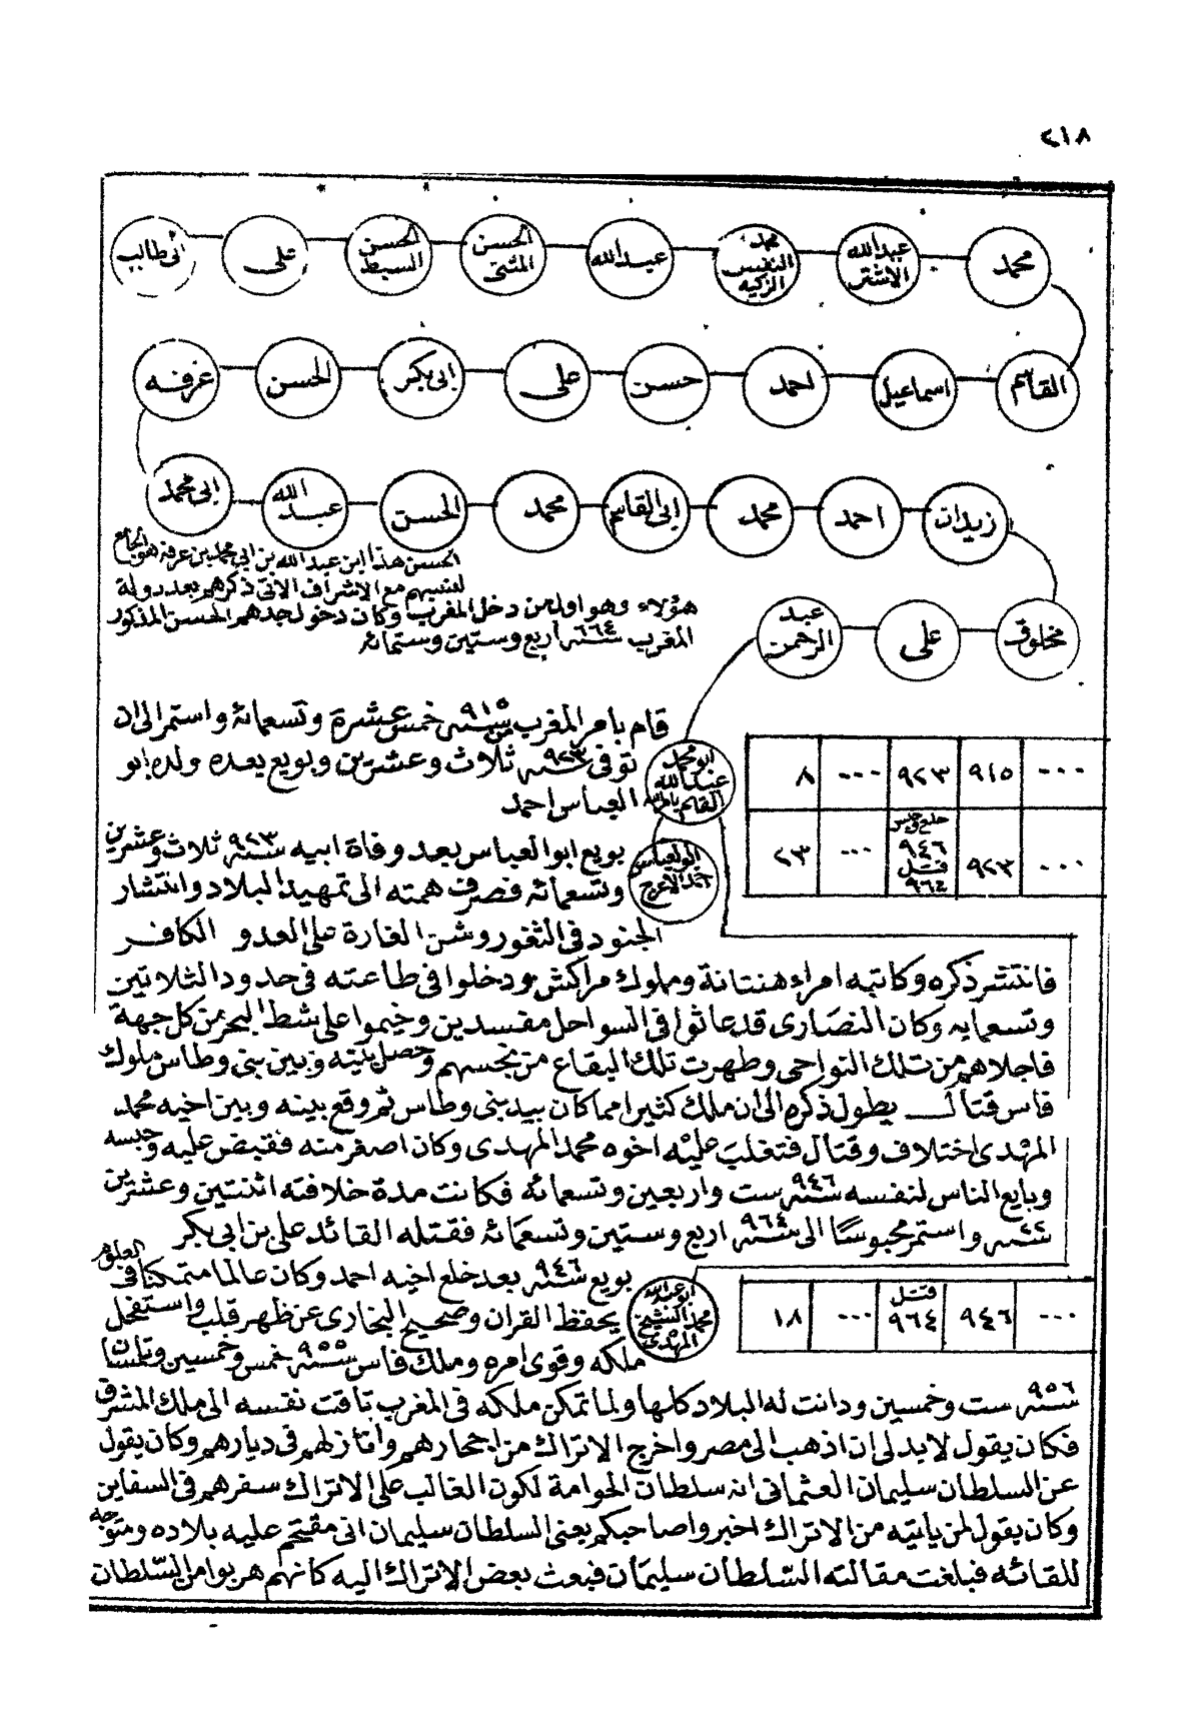 ٢١٨
محمد
عبدالله الاشتر
محمد النفس الزكيه
عبدالله
الحسن المثنى
الحسن السبط
على
ابى طالب
القاسم
اسماعيل
احمد
حسن
على
ابى بكر
الحسن
عرفه
زيدان
احمد
محمد
ابى القاسم
محمد
الحسن
عبد الله
ابى محمد
مخلوف
على
عبد الرحمن
الحسن هذا ابن عبد الله بن ابى محمد بن عرفة هو الجامع
لنسبهم مع الاشراف الاتى ذكرهم بعد دولة
هؤلاء وهو اول من دخل المغرب وكان دخول جدهم الحسن المذكور
المغرب سنة ٦٦٤ اربع وستين وستمائة
٠٠٠ ٩١٥ ٩٢٣ ٠٠٠ ٨
ابو محمد عبدالله القائم بامرالله
قام بامر المغرب سنة ٩١٥ خمس عشرة وتسعمائة واستمر الى ان
توفى سنة ٩٢٣ ثلاث وعشرين وبويع بعده ولده ابو
العباس احمد
٠٠٠ ٩٢٣ خلع وحبس ٩٤٦ قتل ٩٦٤ ٠٠٠ ٢٣
ابو العباس احمد الاعرج
بويع ابو العباس بعد وفاة ابيه سنة ٩٢٣ ثلاث وعشرين
وتسعمائة فصرف همته الى تمهيد البلاد وانتشار
الجنود فى الثغور وشن الغارة على العدو الكافر
فانتشر ذكره وكاتبه امراء هنتانة وملوك مراكش ودخلوا فى طاعته فى حدود الثلاثين
وتسعمايه وكان النصارى قد عاثوا فى السواحل مفسدين وخيموا على شط البحر من كل جهة
فاجلاهم من تلك النواحى وطهرت تلك البقاع من نجسهم وحصل بينه وبين بنى وطاس ملوك
فاس قتال يطول ذكره الى ان ملك كثيرا مما كان بيد بنى وطاس ثم وقع بينه وبين اخيه محمد
المهدى اختلاف وقتال فتغلب عليه اخوه محمد المهدى وكان اصغر منه فقبض عليه وحبسه
وبايع الناس لنفسه سنة ٩٤٦ ست واربعين وتسعمائة فكانت مدة خلافته اثنتين وعشرين
سنة ٢٢ واستمر محبوسًا الى سنة ٩٦٤ اربع وستين وتسعمائة فقتله القائد على بن ابى بكر
٠٠٠ ٩٤٦ قتل ٩٦٤ ٠٠٠ ١٨
ابو عبدالله محمد الشيخ المهدى
بويع سنة ٩٤٦ بعد خلع اخيه احمد وكان عالما متمكنا فى العلوم
يحفظ القران وصحيح البخارى عن ظهر قلب واستفحل
ملكه وقوى امره وملك فاس سنة ٩٥٥ خمس وخمسين وتلمسان
سنة ٩٥٦ ست وخمسين ودانت له البلاد كلها ولما تمكن ملكه فى المغرب تاقت نفسه الى ملك المشرق
فكان يقول لابد لى ان اذهب الى مصر واخرج الاتراك من اجحارهم وانازلهم فى ديارهم وكان يقول
عن السلطان سليمان العثمانى انه سلطان الحواتة لكون الغالب على الاتراك سفرهم فى السفاين
وكان يقول لمن ياتيه من الاتراك اخبروا صاحبكم يعنى السلطان سليمان انى مقتحم عليه بلاده ومتوجه
للقائه فبلغت مقالته السلطان سليمان فبعث بعض الاتراك اليه كانهم هربوا من السلطان